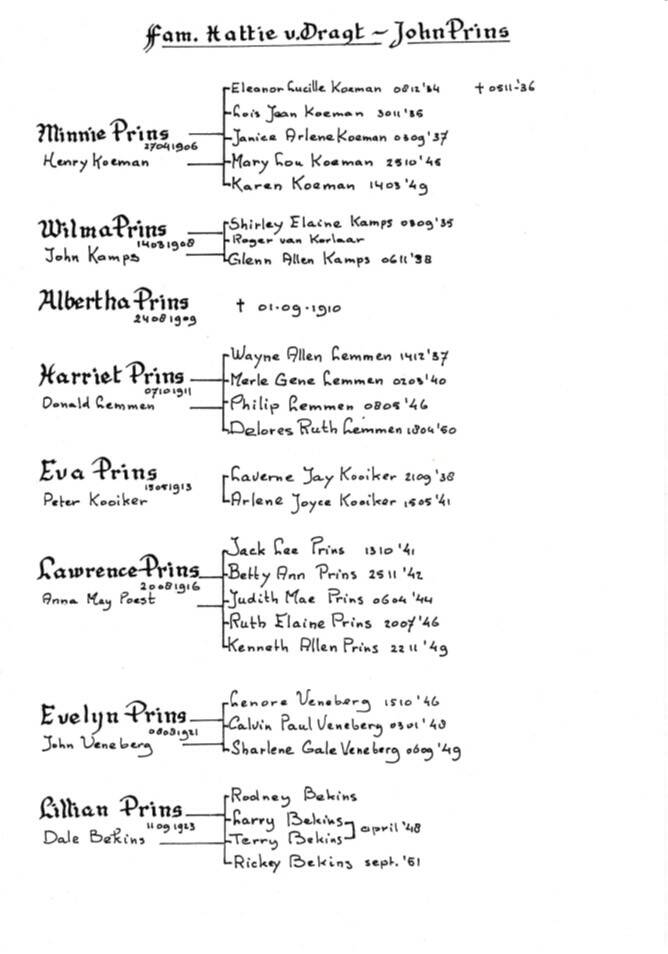 Fam. Hattie v.Dragt – John Prins
Eleanor Lucille Koeman 0812'34 † 0511-'36
Lois Jean Koeman 3011'35
Minnie Prins 27041906
Janice Arlene Koeman 0309'37
Henry Koeman
Mary Lou Koeman 2510'45
Karen Koeman 1403'49
Wilma Prins 14031908
Shirley Elaine Kamps 0309'35
Roger van Korlaar
John Kamps
Glenn Allen Kamps 0611'38
Albertha Prins 24081909
† 01-09-1910
Wayne Allen Lemmen 1412'37
Harriet Prins 07101911
Merle Gene Lemmen 0203'40
Donald Lemmen
Philip Lemmen 0805'46
Delores Ruth Lemmen 1804'50
Eva Prins
Laverne Jay Kooiker 2109'38
Peter Kooiker
Arlene Joyce Kooiker 1505'41
Jack Lee Prins 1310'41
Lawrence Prins 20081916
Betty Ann Prins 2511'42
Anna May Poest
Judith Mae Prins 0604'44
Ruth Elaine Prins 2007'46
Kenneth Allen Prins 2211'49
Lenore Veneberg 1510'46
Evelyn Prins
Calvin Paul Veneberg 0301'48
John Veneberg
Sharlene Gale Veneberg 0609'49
Rodney Bekins
Lillian Prins 11091923
Larry Bekins
april '48
Dale Bekins
Terry Bekins
Rickey Bekins sept. '51